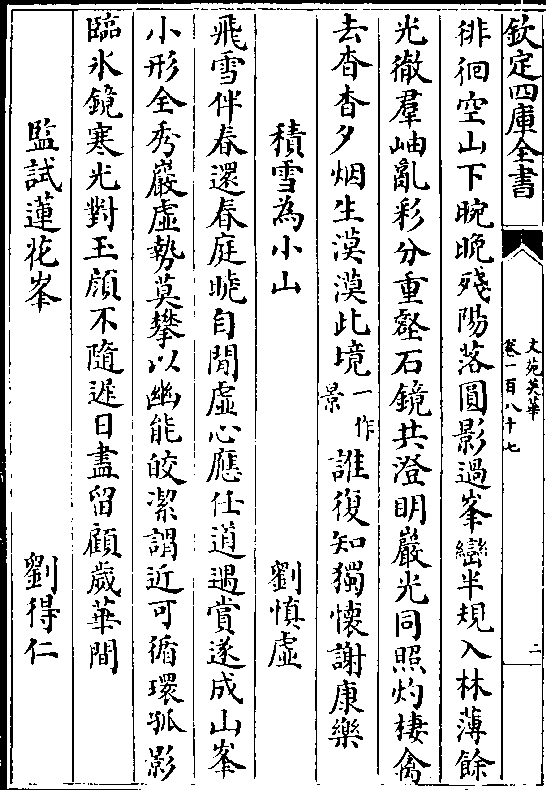 欽定四庫全書
文苑英華
卷一百八十七
二
徘徊空山下晼晚殘陽落圓影過峯巒半規入林薄餘
光徹羣岫亂彩分重壑石鏡共澄明巖光同照灼棲禽
去杳杳夕烟生漠漠此境一作景誰復知獨懷謝康樂
積雪為小山 劉慎虛
飛雪伴春還春庭曉自閒虛心應任道遇賞遂成山峯
小形全秀巖虛勢莫攀以幽能皎潔謂近可循環孤影
臨氷鏡寒光對玉顔不隨遲日盡留顧歲華間
監試蓮花峯 劉得仁